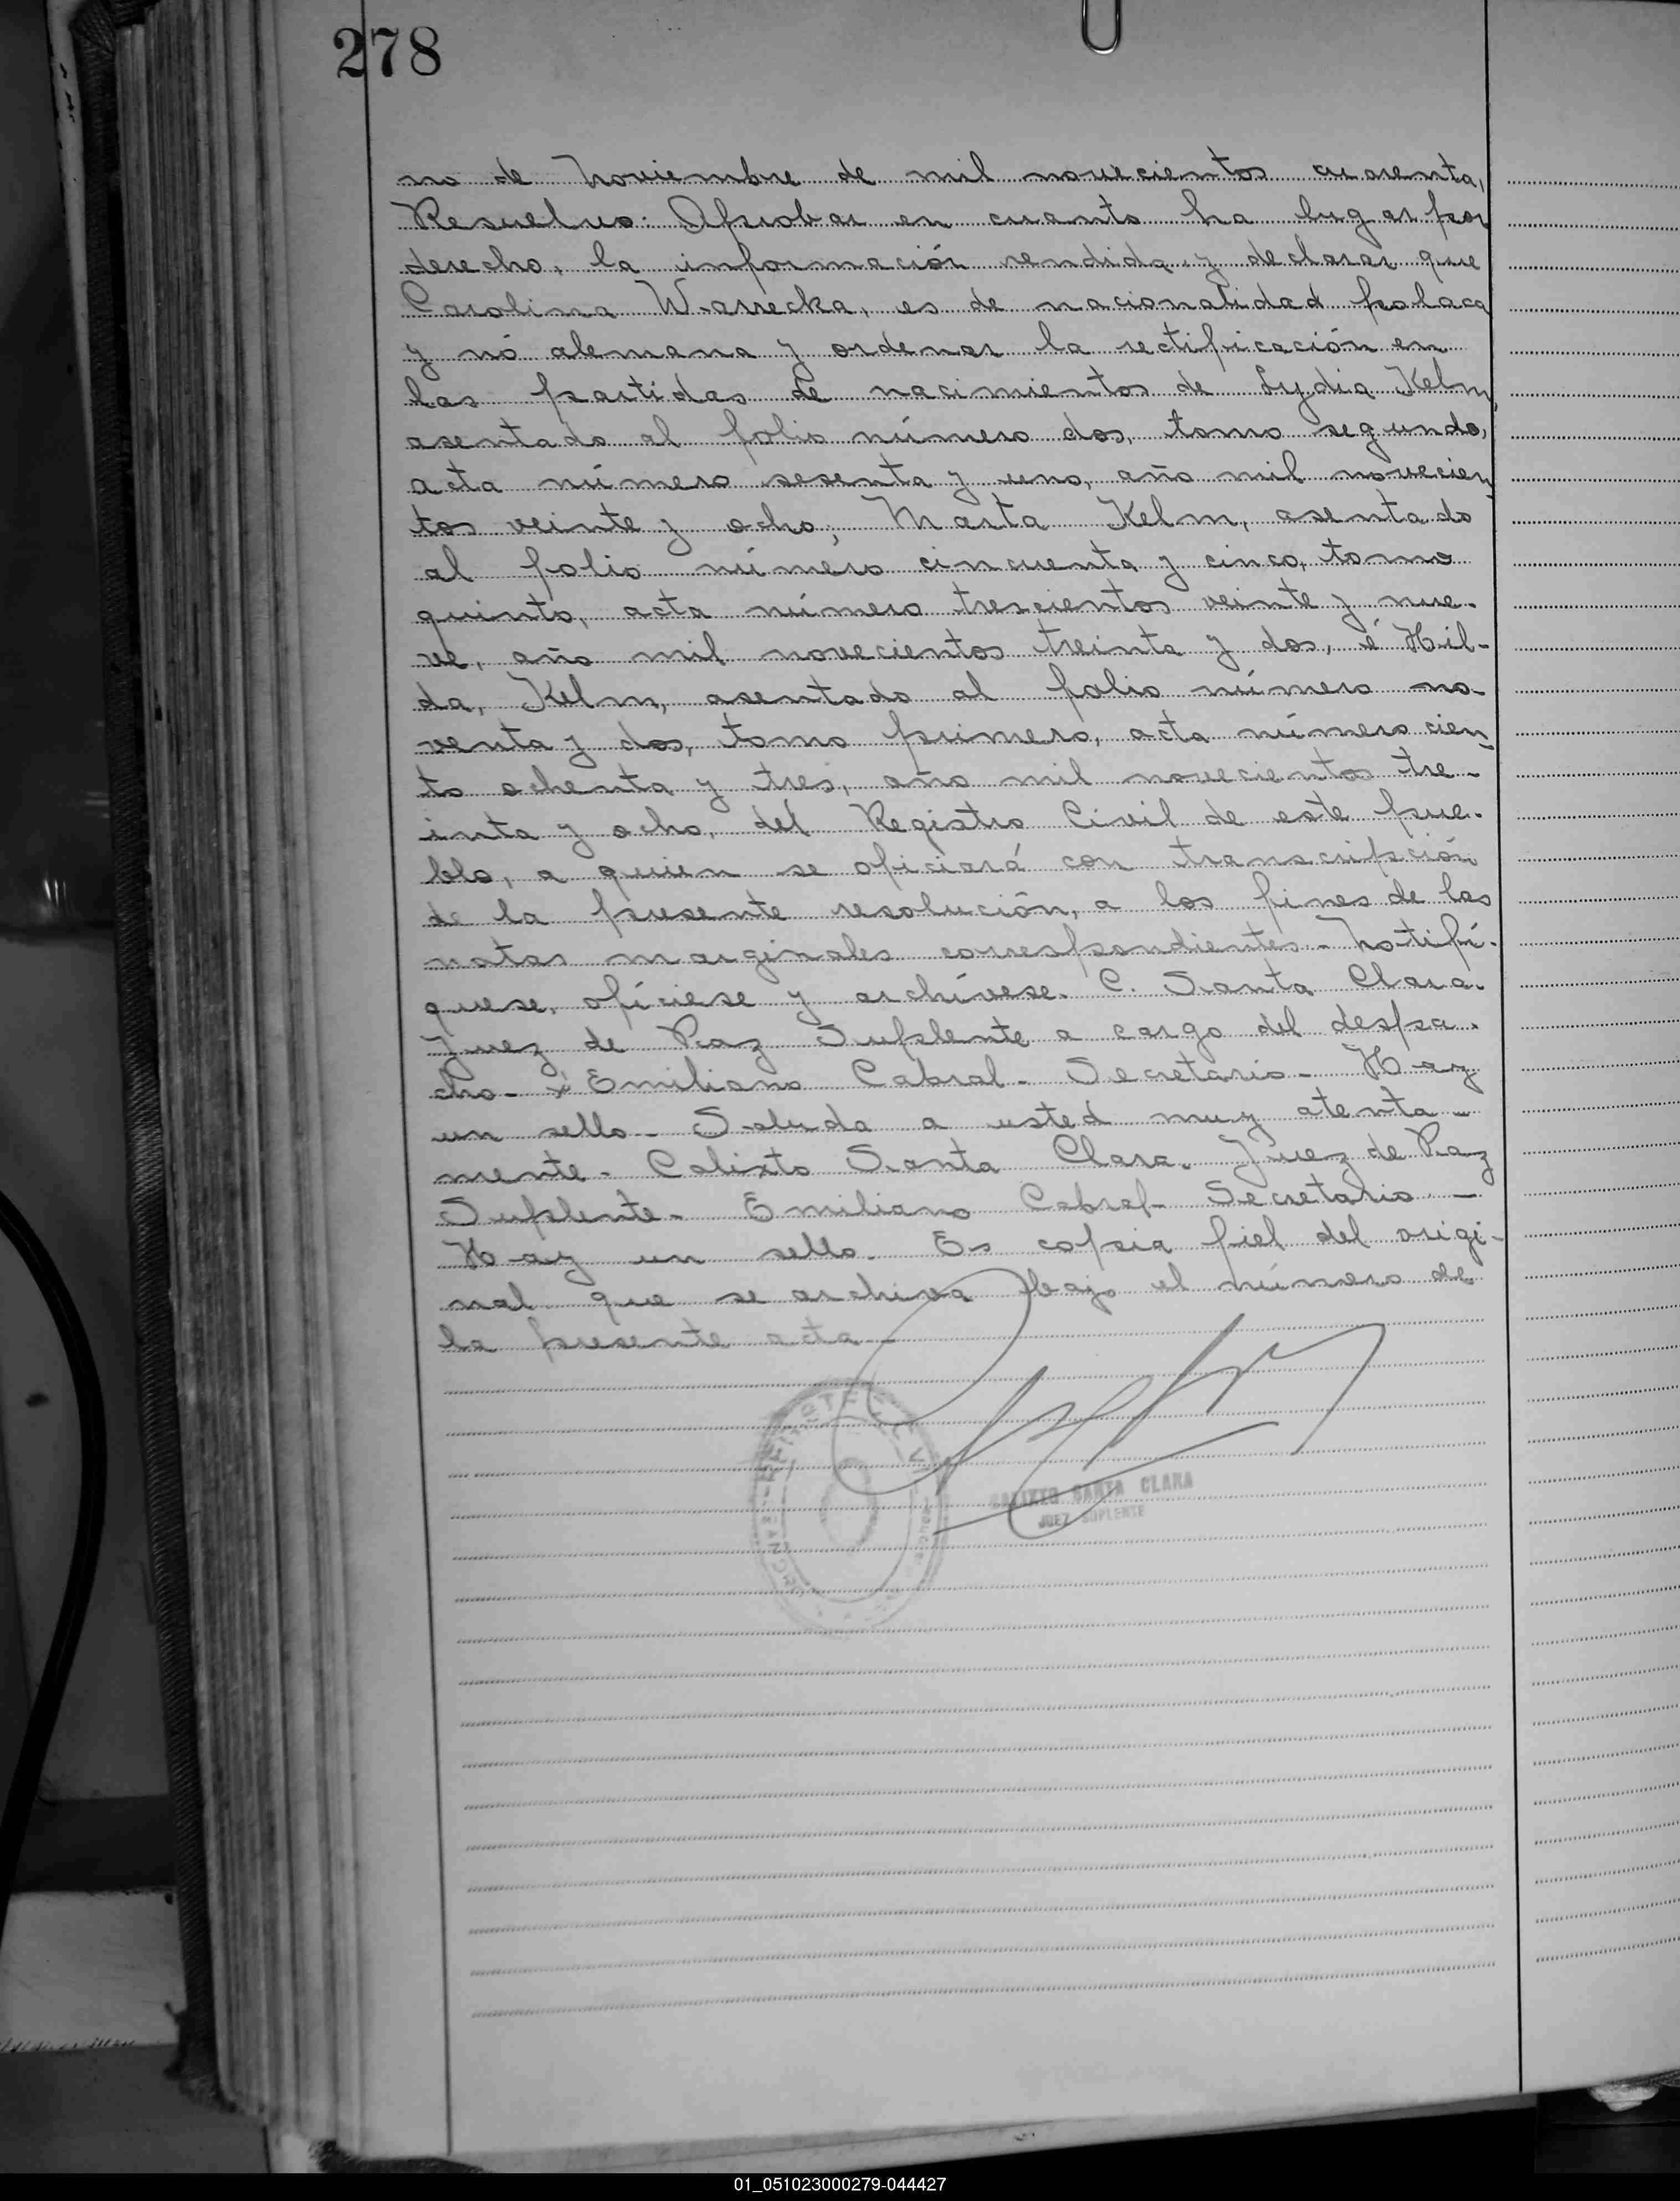 278
no de Noviembre de mil novecientos cuarenta,
Resuelvo: Aprobar en cuanto ha lugar por
derecho, la información rendida y declarar que
Carolina Warrecka, es de nacionalidad polaca
y nó alemana y ordenar la rectificación en
las partidas de nacimientos de Lydia Kelm,
asentado al folio número dos, tomo segundo,
acta número sesenta y uno, año mil novecien
tos veinte y ocho; Marta Kelm, asentado
al folio número cincuenta y cinco, tomo
quinto, acta número trescientos veinte y nue-
ve, año mil novecientos treinta y dos, é Hil-
da, Kelm, asentado al folio número no-
venta y dos, tomo primero, acta número cien
to ochenta y tres, año mil novecientos tre-
inta y ocho, del Registro Civil de este pue-
blo, a quien se oficiará con transcripción
de la presente resolución, a los fines de las
notas marginales correspondientes - Notifí-
quese, ofíciese y archívese. C. Santa Clara.
Juez de Paz Suplente a cargo del despa-
cho - Emiliano Cabral - Secretario - Hay
un sello - Saluda a usted muy atenta-
mente - Calixto Santa Clara. Juez de Paz
Suplente - Emiliano Cabral - Secretario -
Hay un sello. Es copia fiel del origi-
nal que se archiva bajo el número de
la presente acta -
CALIXTO SANTA CLARA
JUEZ SUPLENTE
01_051023000279-044427